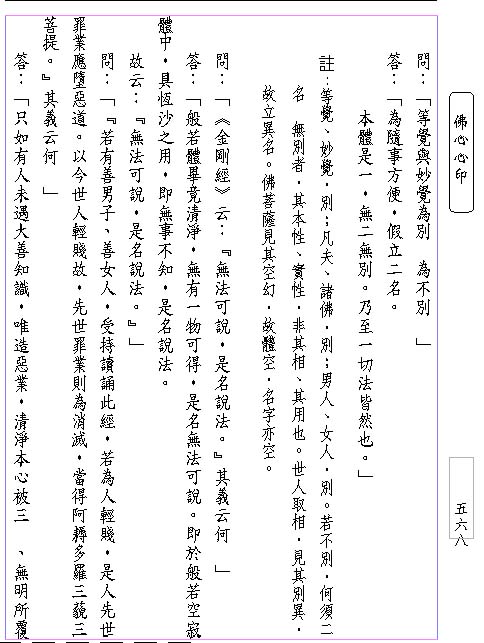 佛心心印
五六八
問：「等覺與妙覺為別　為不別　」
答：「為隨事方便，假立二名。
本體是一，無二無別。乃至一切法皆然也。」
註：等覺、妙覺，別；凡夫、諸佛，別；男人、女人，別。若不別，何須二
名　無別者，其本性、實性，非其相、其用也。世人取相，見其別異，
故立異名。佛菩薩見其空幻，故體空，名字亦空。
問：「《金剛經》云：『無法可說，是名說法。』其義云何　」
答：「般若體畢竟清淨，無有一物可得，是名無法可說。即於般若空寂
體中，具恆沙之用，即無事不知，是名說法。
故云：『無法可說，是名說法。』」
問：「『若有善男子、善女人，受持讀誦此經，若為人輕賤，是人先世
罪業應墮惡道。以今世人輕賤故，先世罪業則為消滅，當得阿耨多羅三藐三
菩提。』其義云何　」
答：「只如有人未遇大善知識，唯造惡業，清淨本心被三　、無明所覆